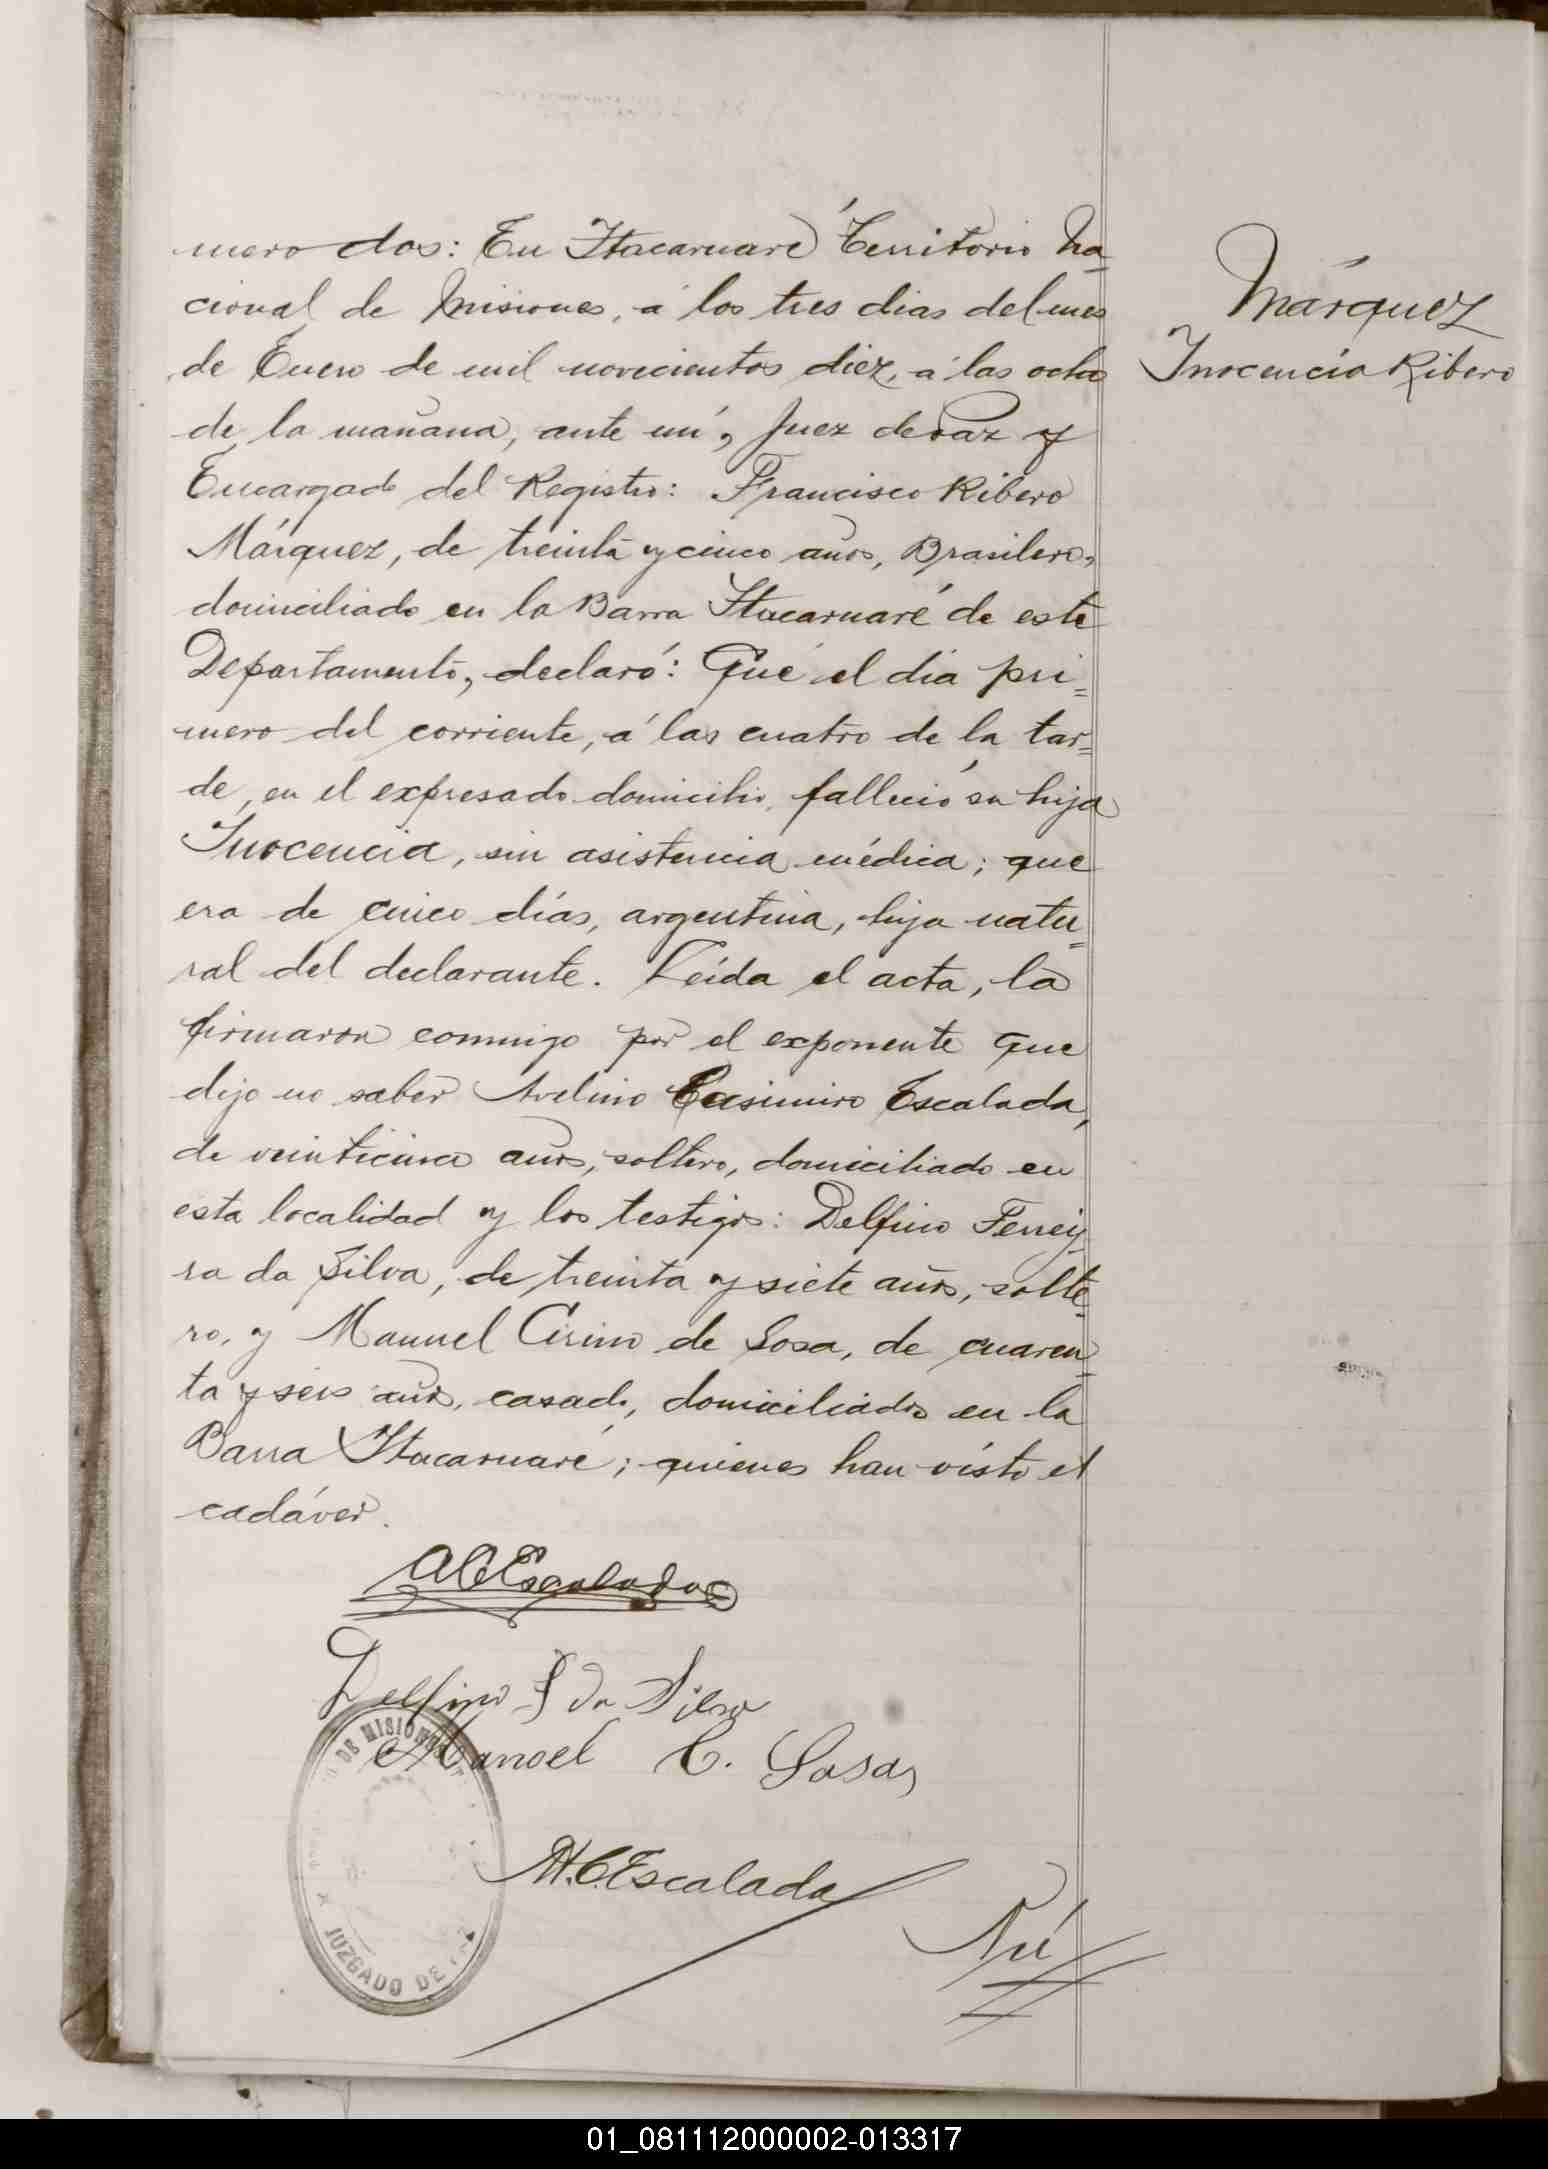 mero dos: En Itacaruaré Territorio Na-
cional de Misiones, á los tres dias del mes
de Enero de mil novecientos diez, á las ocho
de la mañana, ante mí, Juez de Paz y
Encargado del Registro: Francisco Ribero
Márquez, de treinta y cinco años, Brasilero,
domiciliado en la Barra Itacaruaré de este
Departamento, declaró: Que el dia pri=
mero del corriente, á las cuatro de la tar=
de, en el expresado domicilio, falleció su hija
Inocencia, sin asistencia médica; que
era de cinco días, argentina, hija natu=
ral del declarante. Leída el acta, la
firmaron conmigo por el exponente que
dijo no saber Avelino Casimiro Escalada,
de veinticinco años, soltero, domiciliado en
esta localidad y los testigos: Delfino Ferrey-
ra da Silva, de treinta y siete años, solte-
ro, y Manuel Cirino de Sosa, de cuaren-
ta y seis años, casado, domiciliados en la
Barra Itacaruaré; quienes han visto el
cadáver.
Márquez
Inocencia Ribero
A C Escalada
Delfino F da Silva
Manoel C. Sosa
DE MISIONES
JUZGADO DE
M.C. Escalada
01_081112000002-013317